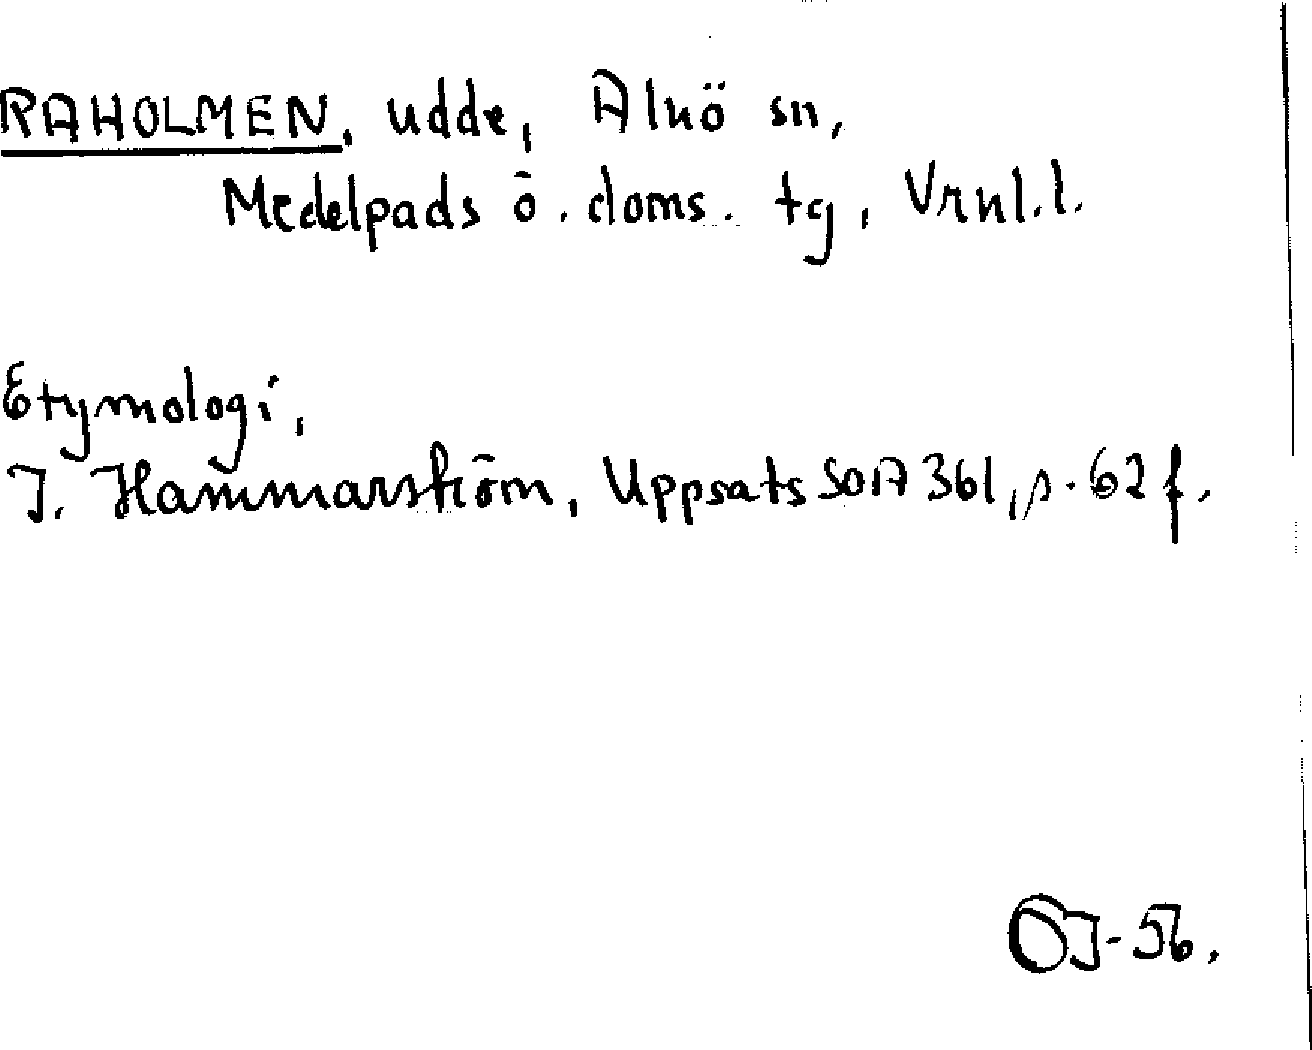 RAHOLMEN, udde, Alnö sn,
Medelpads ö. doms. tg, Vrnl.l.
Etymologi,
J. Hammarström, Uppsats SOA 361, s. 62 f.
OJ-56.